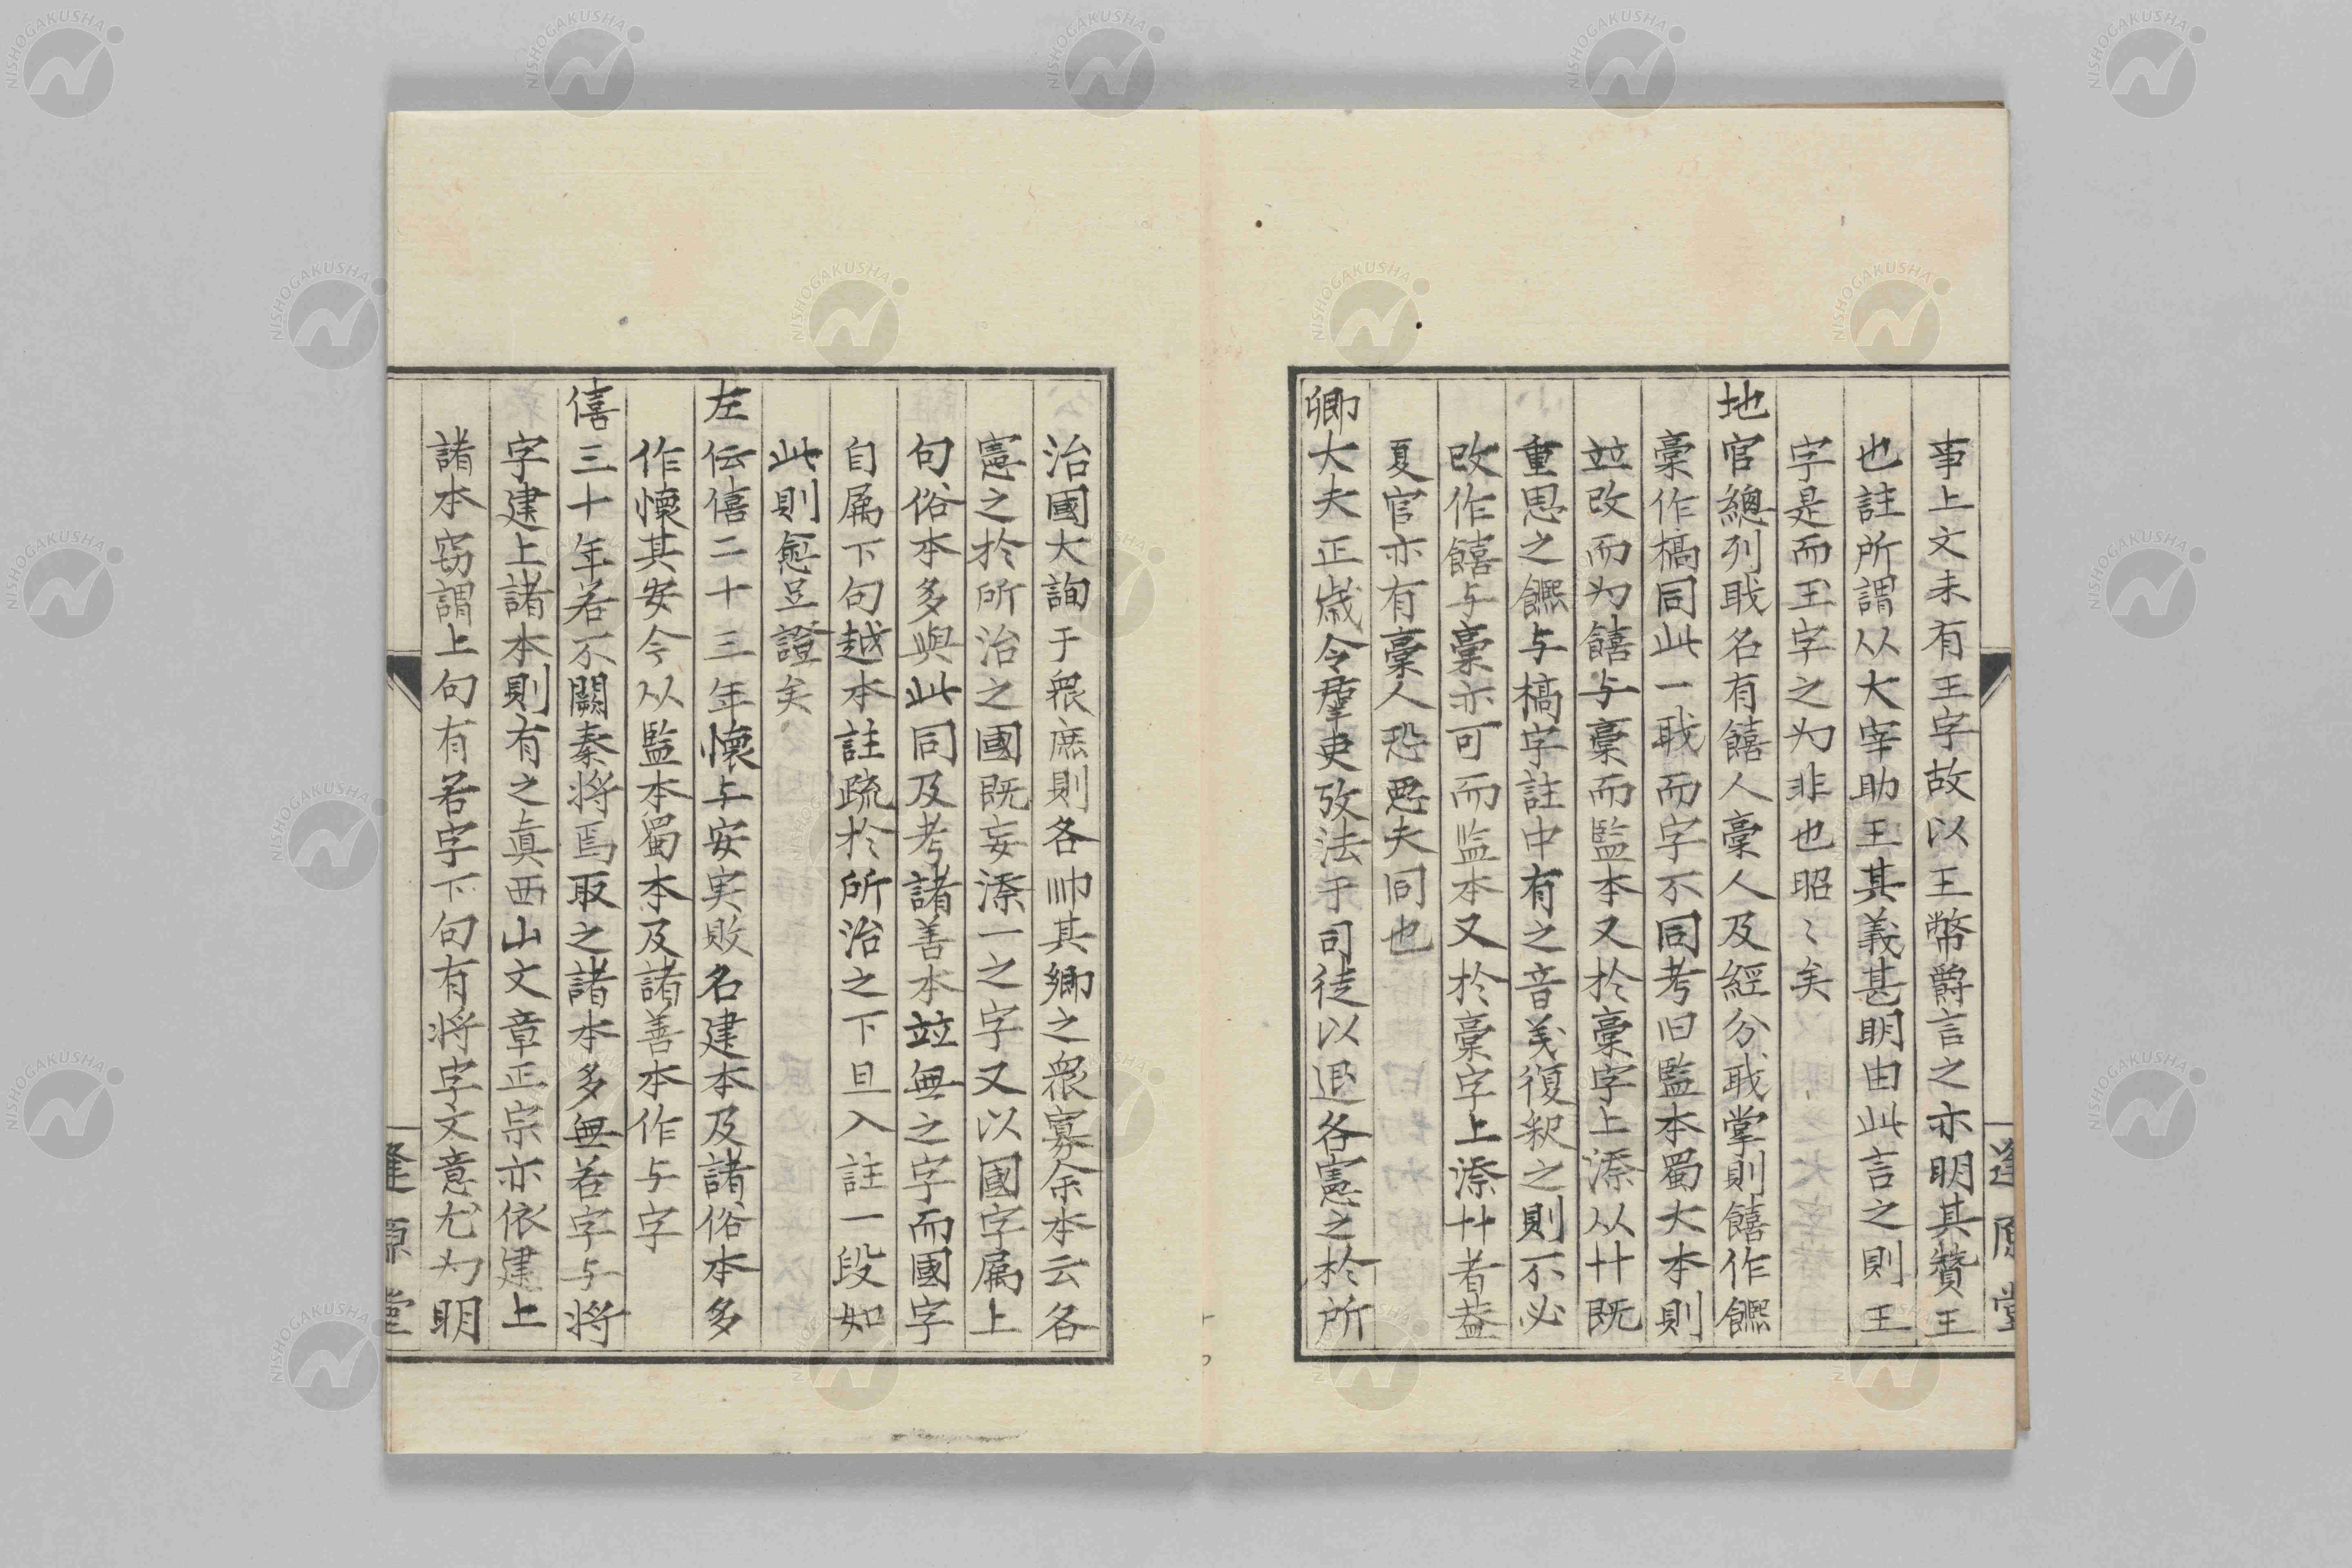 事上文未有王字故以王幣爵言之亦明其贊王
也註所謂从大宰助王其義甚明由此言之則王
字是而王字之为非也昭〻矣
地官總列戢名有饎人稾人及經分戢掌則饎作饎
稾作槁同此一戢而字不同考旧監本蜀大本則
竝改而为饎与稾而監本又於稾字上添从卄既
重思之饎与槁字註中有之音义復釈之則不必
改作饎与稾亦可而监本又於稾字上添艹者葢
夏官亦有稾人恐思夫同也
卿大夫正歲令羣吏攷法于司徒以退各憲之於所
治國大詢于衆庶則各帥其鄉之衆寡余本云各
憲之於所治之國既妄添一之字又以國字屬上
句俗本多與此同及考諸善本竝無之字而國字
自属下句越本註疏於所治之下且入註一段如
此則愈足證矣
左伝僖二十三年懷与安実敗名建本及諸俗本多
作懷其安今从監本蜀本及諸善本作与字
僖三十年若不闕秦将焉取之諸本多無若字与将
字建上諸本則有之真西山文章正宗亦依建上
諸本窃謂上句有若字下句有将字文意尤为明
逢原堂
逢原堂
NISHOGAKUSHA